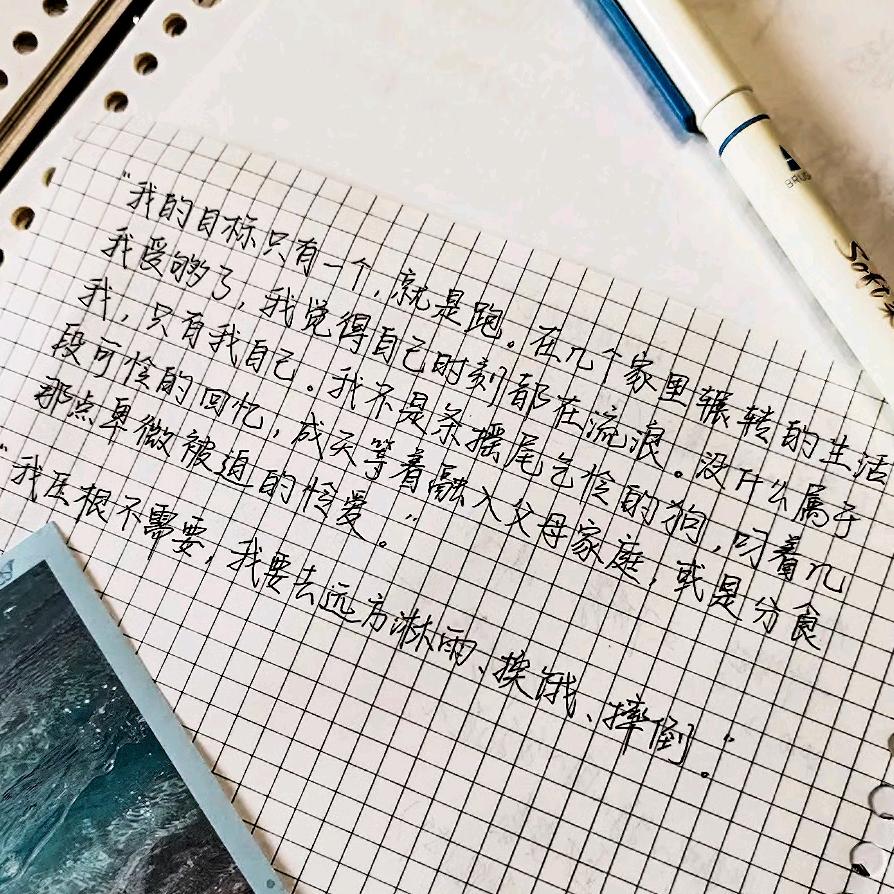 “我的目标只有一个，就是跑。在几个家里辗转的生活
我受够了，我觉得自己时刻都在流浪。没什么属于
我，只有我自己。我不是条摇尾乞怜的狗，叼着几
段可怜的回忆，成天等着融入父母家庭，或是分食
那点卑微被迫的怜爱。”
“我压根不需要，我要去远方淋雨、挨饿、摔倒。”
BRUS